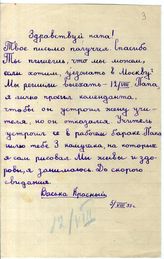 3
Здравствуй папа!
Твое письмо получил. Спасибо
Ты пишешь, что мы можем,
если хотим, уезжать в Москву?
Мы решили выехать - 12/VIII. Папа,
я лично просил коменданта,
чтобы он устроил жену учи-
теля, но он отказался. Учитель
устроил ее в рабочем бараке. Папа
шлю тебе 3 катушка, на которых
я сам рисовал. Мы живы и здо-
ровы, занимаюсь. До скорого
свидания.
Васька Красный
12/VIII